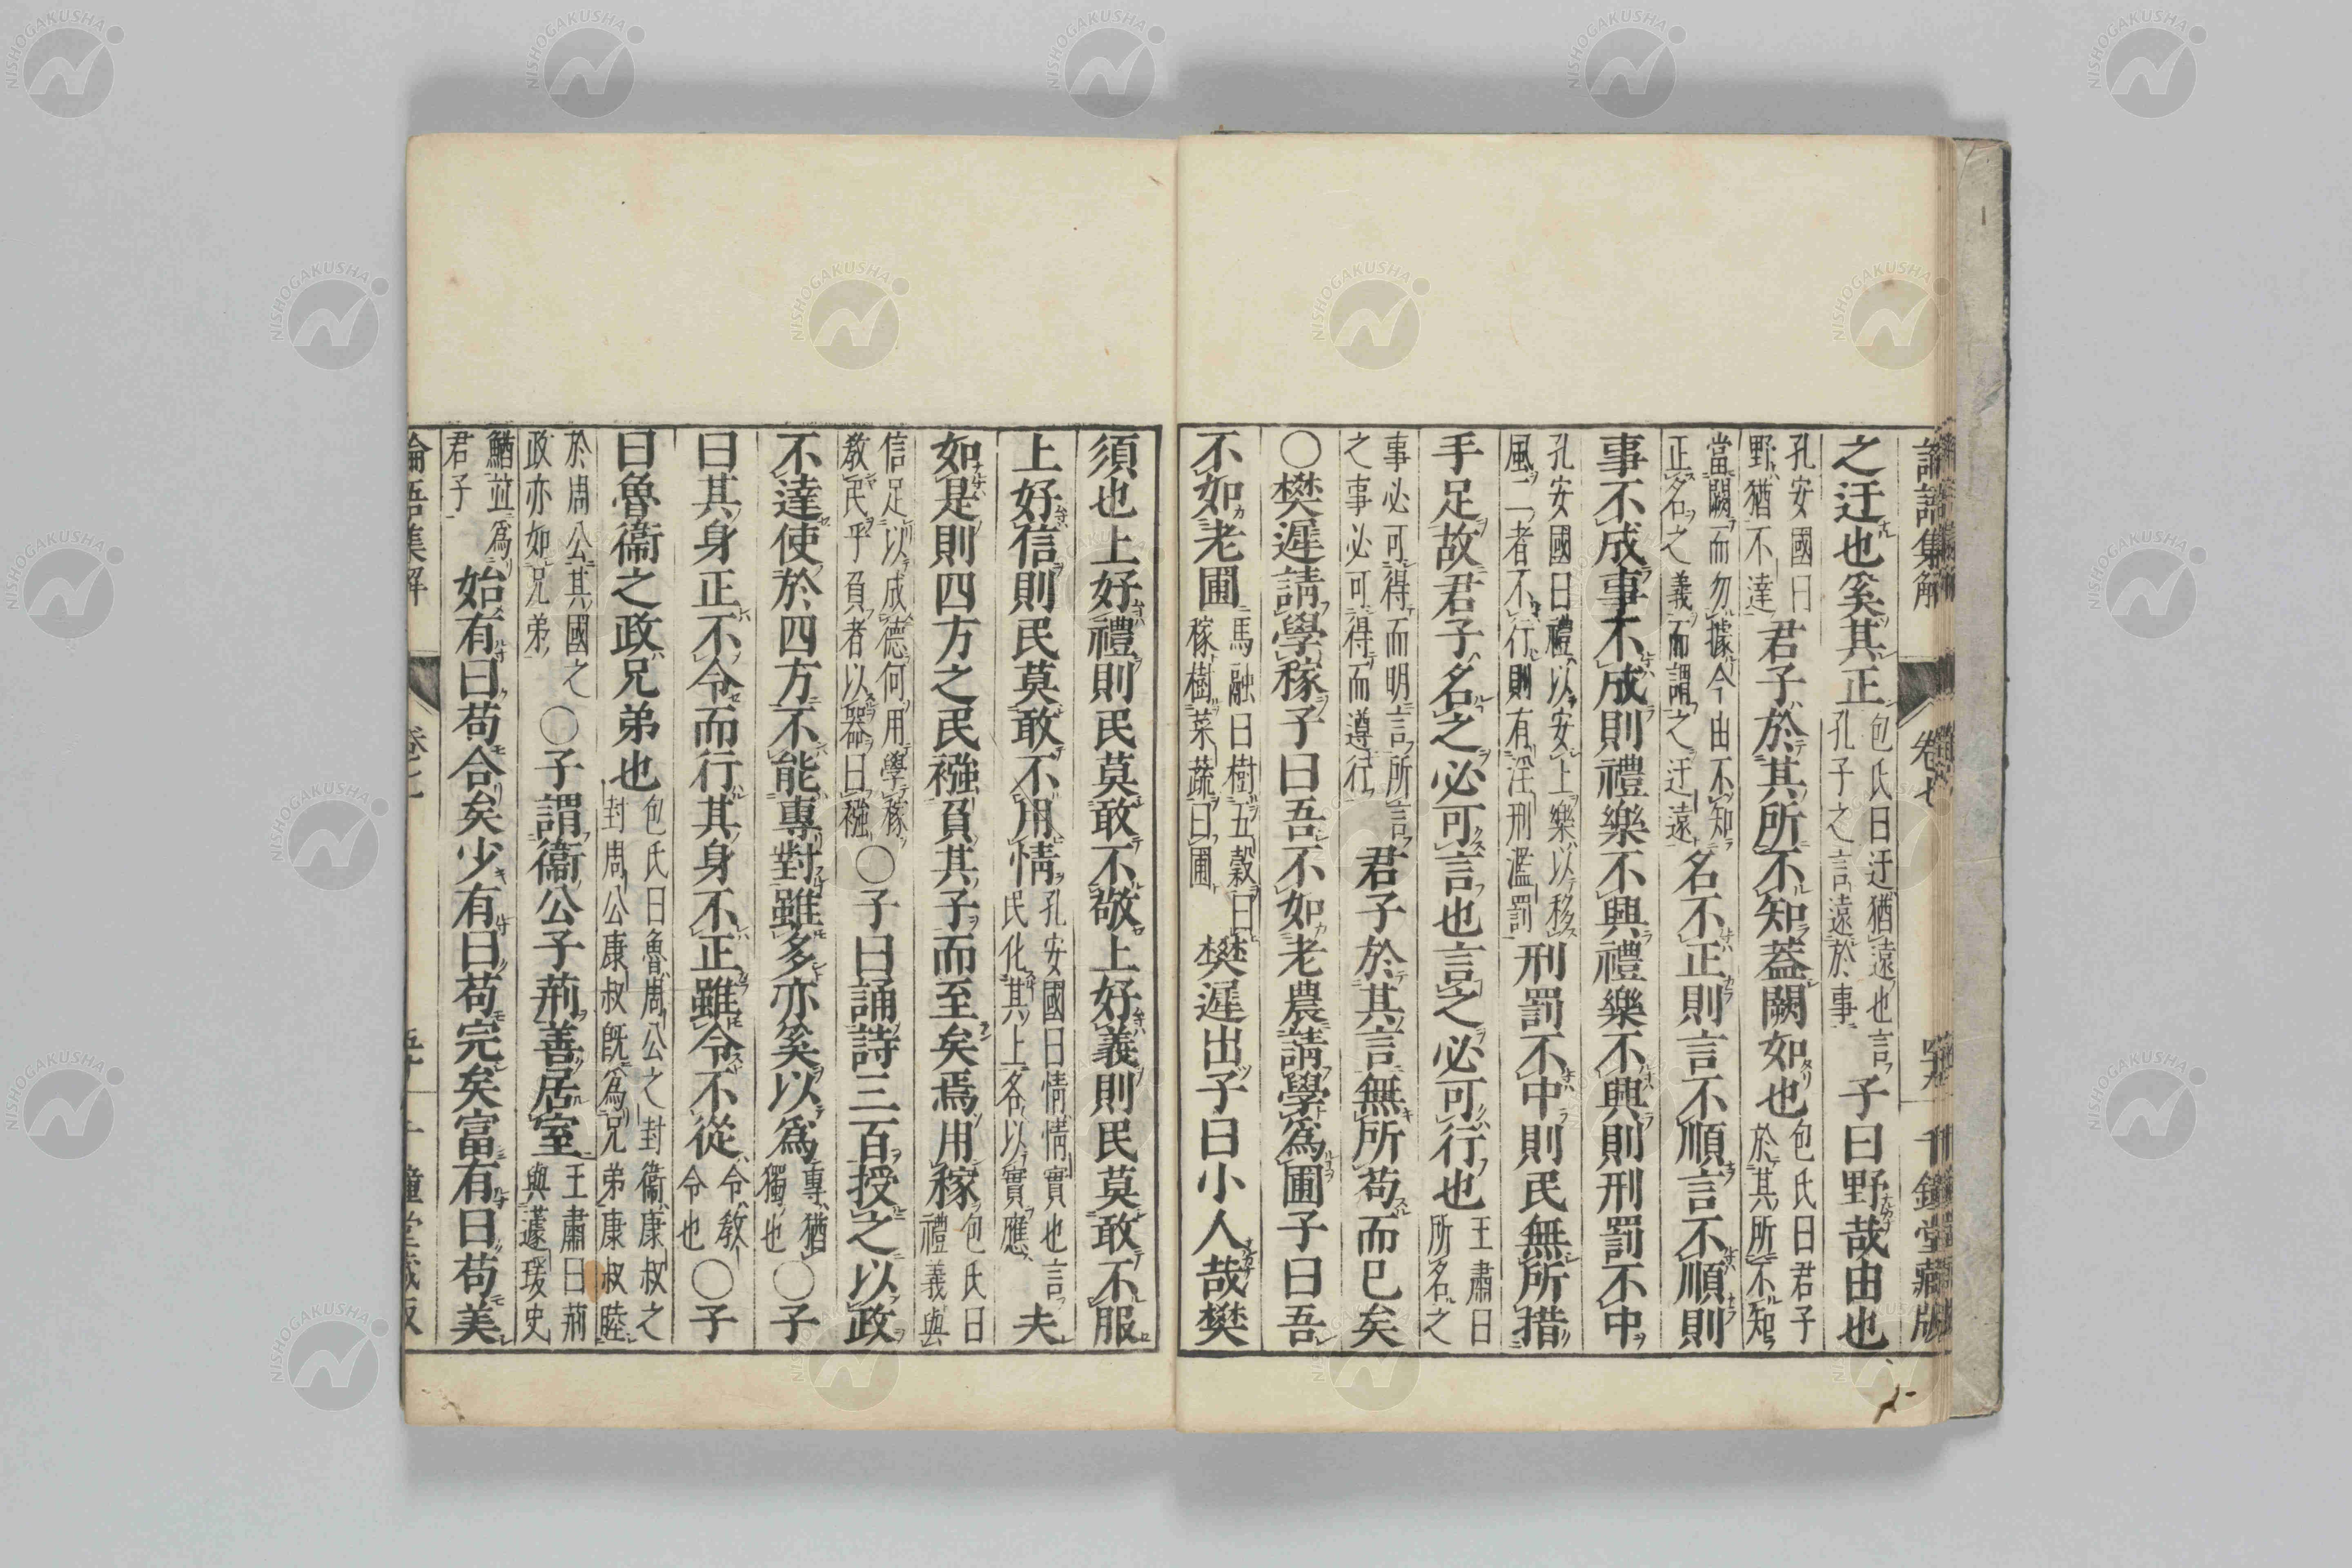 論語集解 卷七 千鍾堂藏版
之迂也奚其正 包氏曰迂猶遠也言孔子之言遠於事 子曰野哉由也
孔安國曰野猶不達 君子於其所不知蓋闕如也 包氏曰君子於其所不知
當闕而勿據今由不知正名之義而謂之迂遠 名不正則言不順言不順則
事不成事不成則禮樂不興禮樂不興則刑罰不中
孔安國曰禮以安上樂以移風二者不行則有淫刑濫罰 刑罰不中則民無所措
手足故君子名之必可言也言之必可行也 王肅曰所名之
事必可得而明言所言之事必可得而遵行 君子於其言無所苟而已矣
○樊遲請學稼子曰吾不如老農請學爲圃子曰吾
不如老圃 馬融曰樹五穀曰稼樹菜蔬曰圃 樊遲出子曰小人哉樊
須也上好禮則民莫敢不敬上好義則民莫敢不服
上好信則民莫敢不用情 孔安國曰情情實也言民化其上各以實應 夫
如是則四方之民襁負其子而至矣焉用稼 包氏曰禮義與
信足以成德何用學稼教民乎負者以器曰襁 ○子曰誦詩三百授之以政
不達使於四方不能專對雖多亦奚以爲 專猶獨也 ○子
曰其身正不令而行其身不正雖令不從 令教令也 ○子
曰魯衞之政兄弟也 包氏曰魯周公之封衞康叔之封周公康叔既爲兄弟康叔睦
於周公其國之政亦如兄弟 ○子謂衞公子荊善居室 王肅曰荊與蘧瑗史
鰌竝爲君子 始有曰苟合矣少有曰苟完矣富有曰苟美
論語集解 卷七 千鍾堂藏版
NISHOGAKUSHA